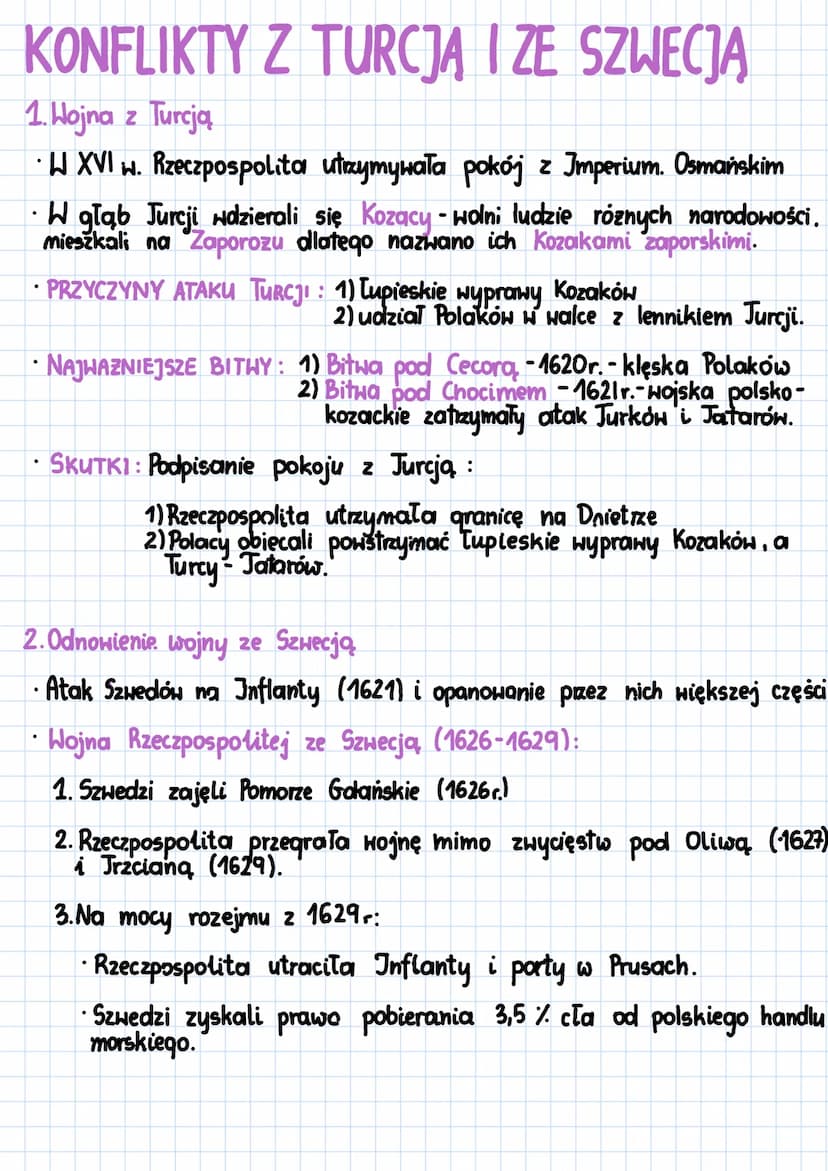 KONFLIKTY Z TURCJĄ I ZE SZWECJĄ
1. Wojna z Turcją
· W XVI w. Rzeczpospolita utrzymywała pokój z Imperium. Osmańskim
· W głąb Turcji wdzierali się Kozacy - wolni ludzie różnych narodowości.
mieszkali na Zaporożu dlatego nazwano ich Kozakami zaporskimi.
· PRZYCZYNY ATAKU TURCJI: 1) Łupieskie wyprawy Kozaków
2) udział Polaków w walce z lennikiem Turcji.
· NAJWAŻNIEJSZE BITWY: 1) Bitwa pod Cecorą - 1620r. - klęska Polaków
2) Bitwa pod Chocimem - 1621r. - wojska polsko-
kozackie zatrzymały atak Turków i Tatarów.
· SKUTKI: Podpisanie pokoju z Turcją :
1) Rzeczpospolita utrzymała granicę na Dnietrze
2) Polacy obiecali powstrzymać łupieskie wyprawy Kozaków, a
Turcy - Tatarów.
2. Odnowienie wojny ze Szwecją
· Atak Szwedów na Inflanty (1621) i opanowanie przez nich większej części
· Wojna Rzeczpospolitej ze Szwecją (1626-1629):
1. Szwedzi zajęli Pomorze Gdańskie (1626r.)
2. Rzeczpospolita przegrała wojnę mimo zwycięstw pod Oliwą (1627)
i Trzcianą (1629).
3. Na mocy rozejmu z 1629r:
· Rzeczpospolita utraciła Inflanty i porty w Prusach.
· Szwedzi zyskali prawo pobierania 3,5 % cła od polskiego handlu
morskiego.